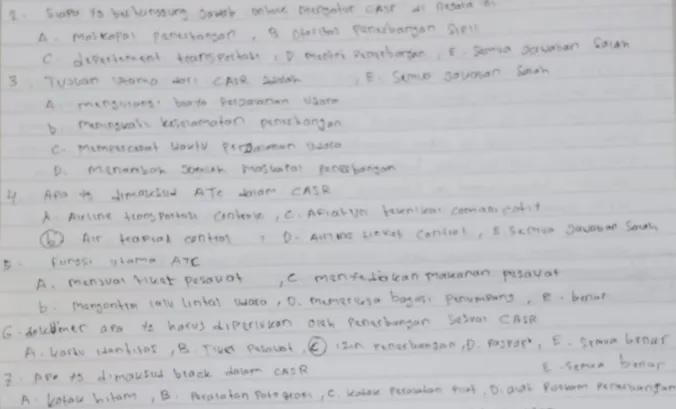 2. Siapa yg bertanggung jawab untuk mengatur CASR di negara
A. Maskapai penerbangan, B Otoritas Penerbangan Sipil
C. departement transportasi, D menteri Penerbangan, E. Semua jawaban Salah
3. Tujuan utama dari CASR adalah, E. Semua jawaban Salah
A. mengurangi biaya perjalanan udara
b. meningkatkan keselamatan penerbangan
C. Mempercepat waktu perjalanan udara
D. Menambah jumlah maskapai penerbangan
4 Apa yg dimaksud ATC dalam CASR
A. Airline transportasi, C. Aviation
(b) Air control, D. Airline ticket control, E. Semua jawaban Salah
5. fungsi utama ATC
A. menjual tiket pesawat, C. menyediakan makanan pesawat
b. mengontrol lalu lintas udara, D. memeriksa bagasi penumpang, E. benar
6. apa yg harus diperlukan oleh Penerbangan Sesuai CASR
A. kartu identitas, B. Tiket Pesawat, (C) izin Penerbangan, D. Pasport, E. Semua benar
7. Apa yg dimaksud black dalam CASR E. Semua benar
A. kotak hitam, B. Peralatan fotografi, C. kotak Peralatan, D. Penerbangan